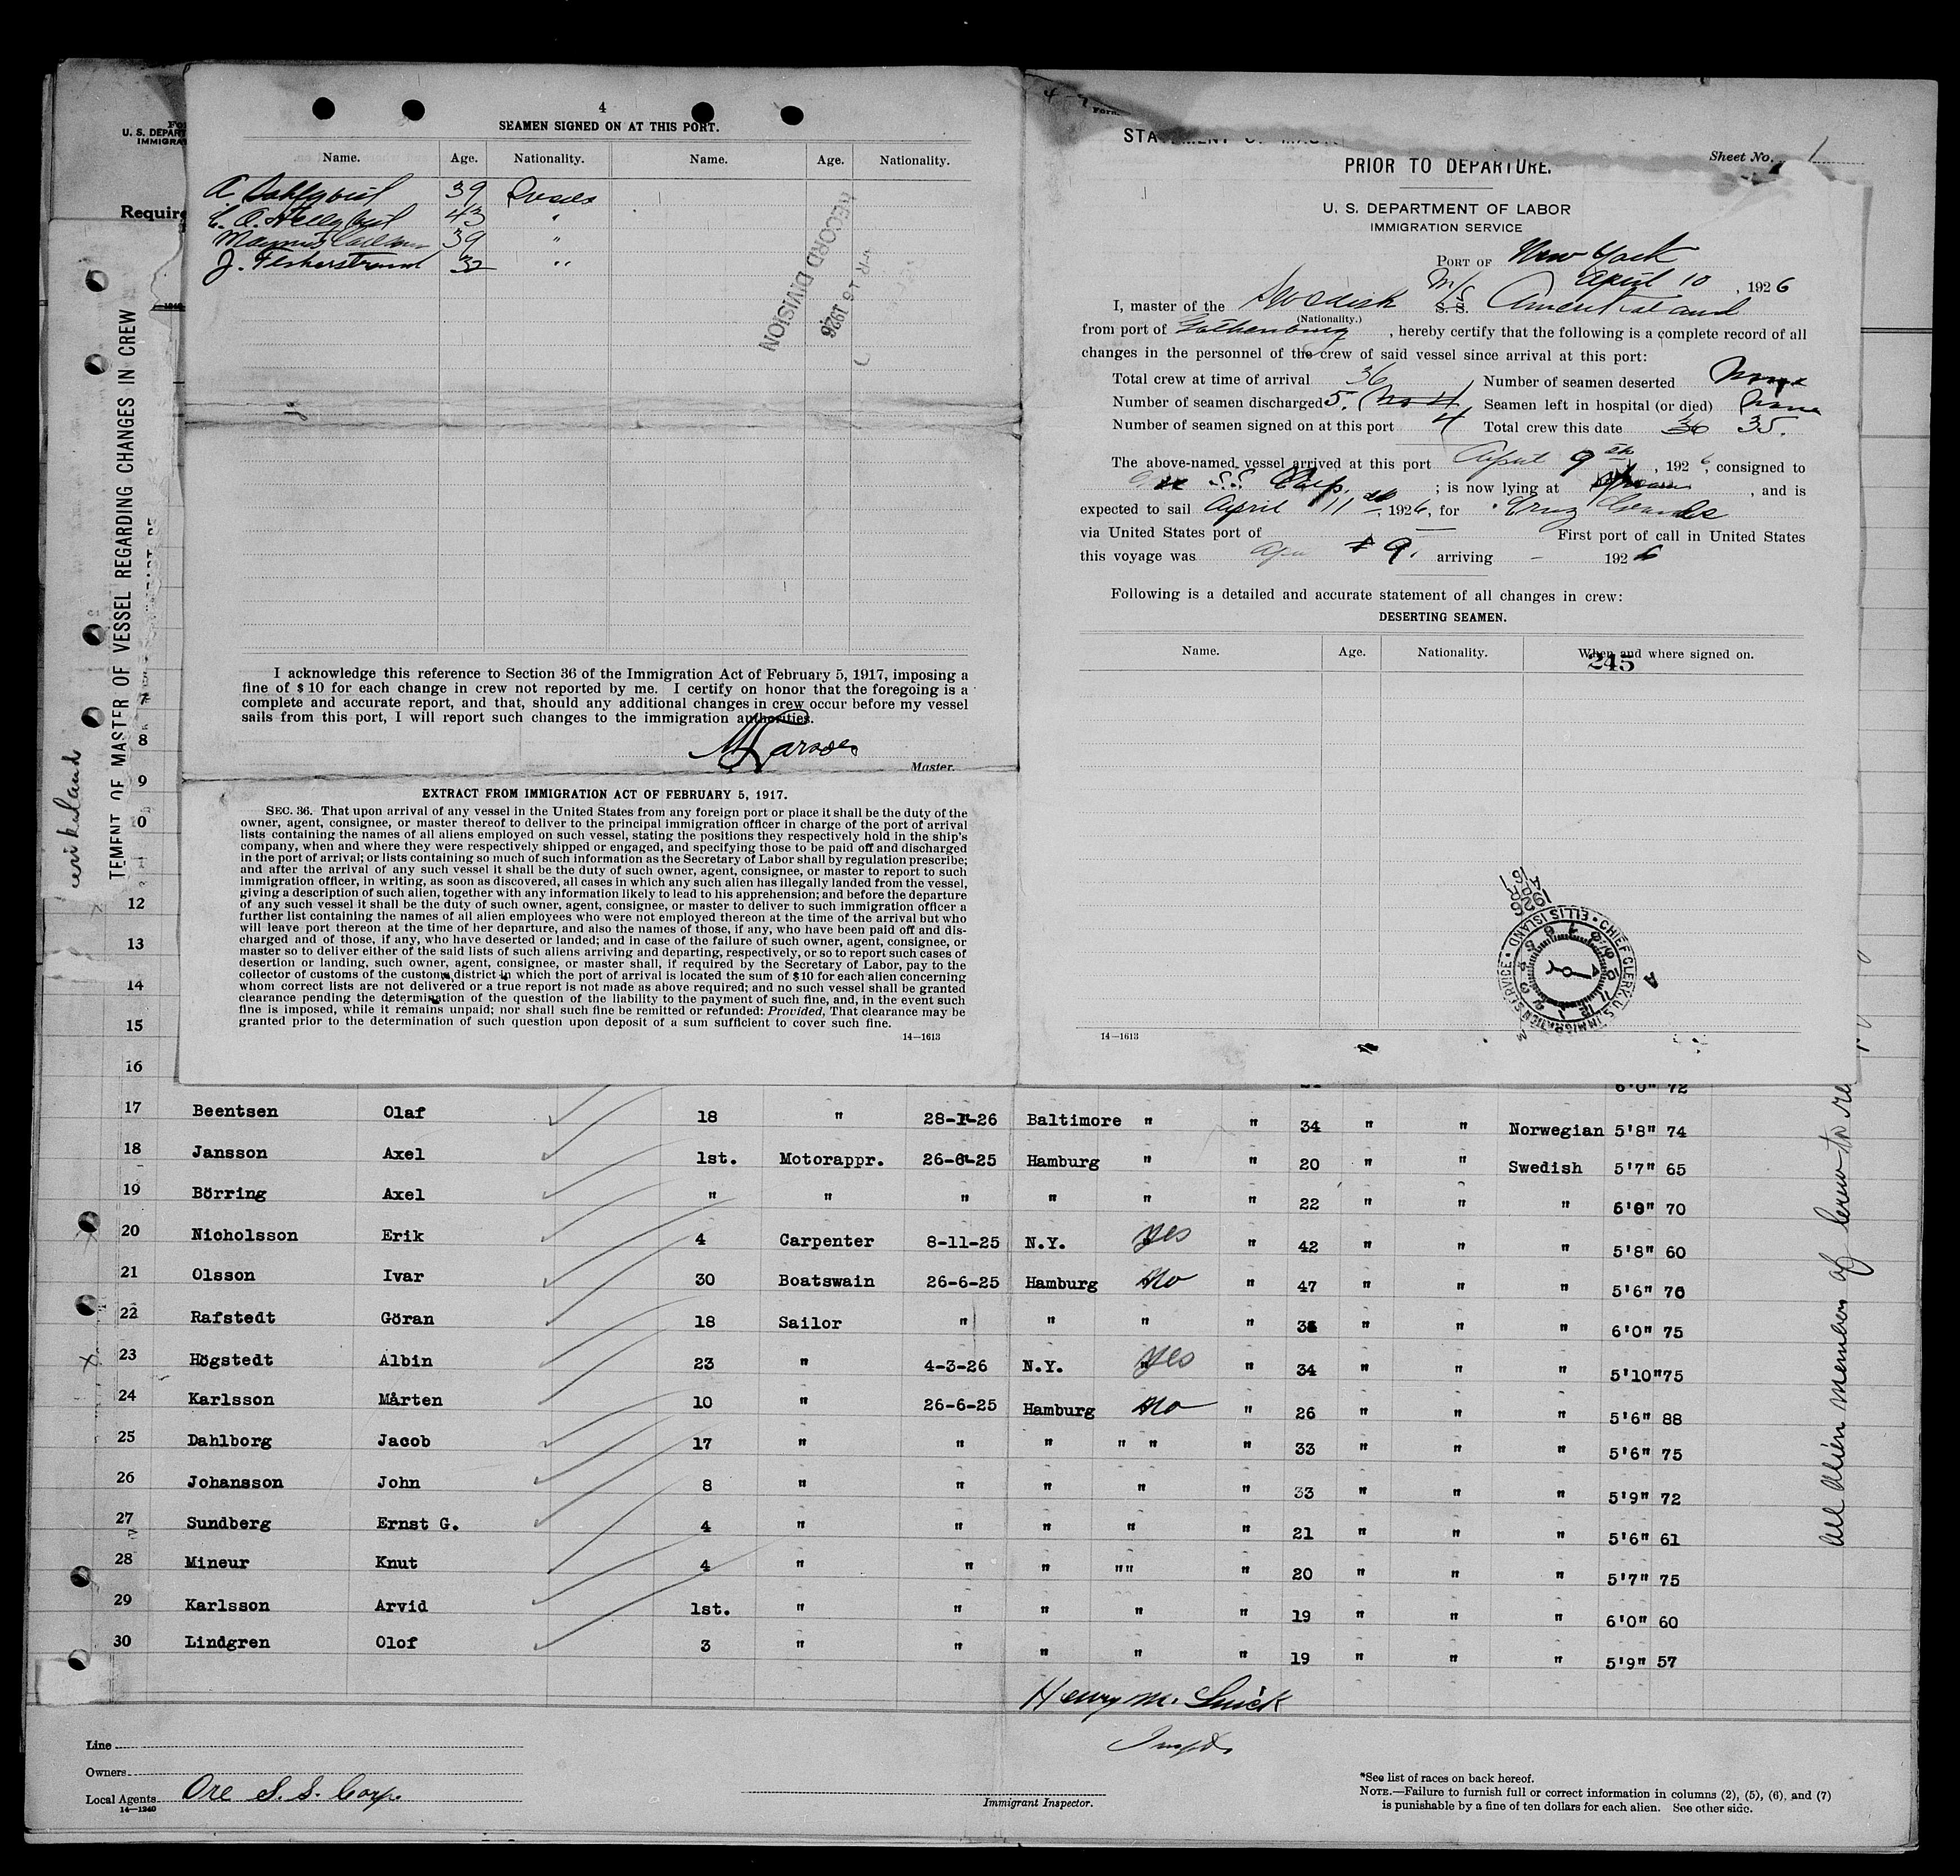 4
SEAMEN SIGNED ON AT THIS PORT.
Name. Age. Nationality. Name. Age. Nationality.
A. Dahlqvist 39 Swedes
43 "
Magnus Carlsson 39 "
J. Fiskerstrand 32 "
RECORD DIVISION
I acknowledge this reference to Section 36 of the Immigration Act of February 5, 1917, imposing a
fine of $10 for each change in crew not reported by me. I certify on honor that the foregoing is a
complete and accurate report, and that, should any additional changes in crew occur before my vessel
sails from this port, I will report such changes to the immigration authorities.
Master.
EXTRACT FROM IMMIGRATION ACT OF FEBRUARY 5, 1917.
SEC. 36. That upon arrival of any vessel in the United States from any foreign port or place it shall be the duty of the
owner, agent, consignee, or master thereof to deliver to the principal immigration officer in charge of the port of arrival
lists containing the names of all aliens employed on such vessel, stating the positions they respectively hold in the ship's
company, when and where they were respectively shipped or engaged, and specifying those to be paid off and discharged
in the port of arrival; or lists containing so much of such information as the Secretary of Labor shall by regulation prescribe;
and after the arrival of any such vessel it shall be the duty of such owner, agent, consignee, or master to report to such
immigration officer, in writing, as soon as discovered, all cases in which any such alien has illegally landed from the vessel,
giving a description of such alien, together with any information likely to lead to his apprehension; and before the departure
of any such vessel it shall be the duty of such owner, agent, consignee, or master to deliver to such immigration officer a
further list containing the names of all alien employees who were not employed thereon at the time of the arrival but who
will leave port thereon at the time of her departure, and also the names of those, if any, who have been paid off and dis-
charged and of those, if any, who have deserted or landed; and in case of the failure of such owner, agent, consignee, or
master so to deliver either of the said lists of such aliens arriving and departing, respectively, or so to report such cases of
desertion or landing, such owner, agent, consignee, or master shall, if required by the Secretary of Labor, pay to the
collector of customs of the customs district in which the port of arrival is located the sum of $10 for each alien concerning
whom correct lists are not delivered or a true report is not made as above required; and no such vessel shall be granted
clearance pending the determination of the question of the liability to the payment of such fine, and, in the event such
fine is imposed, while it remains unpaid; nor shall such fine be remitted or refunded: Provided, That clearance may be
granted prior to the determination of such question upon deposit of a sum sufficient to cover such fine.
14—1613
Sheet No. 1
PRIOR TO DEPARTURE.
U. S. DEPARTMENT OF LABOR
IMMIGRATION SERVICE
PORT OF New York
April 10, 1926
I, master of the Swedish M/S S. S. Amerikaland
(Nationality.)
from port of Gothenburg, hereby certify that the following is a complete record of all
changes in the personnel of the crew of said vessel since arrival at this port:
Total crew at time of arrival 36 Number of seamen deserted None
Number of seamen discharged 5. Seamen left in hospital (or died) None
Number of seamen signed on at this port 4 Total crew this date 36 35.
The above-named vessel arrived at this port April 9th, 1926, consigned to
Ore S.S. Corp.; is now lying at, and is
expected to sail April 11th, 1926, for Cruz Grande
via United States port of First port of call in United States
this voyage was arriving - 1926
Following is a detailed and accurate statement of all changes in crew:
DESERTING SEAMEN.
Name. Age. Nationality. When and where signed on.
245
CHIEF CLERK, U.S. IMMIGRATION SERVICE • ELLIS ISLAND •
14—1613
U. S. DEPART
IMMIGRAT
Require
TEMENT OF MASTER OF VESSEL REGARDING CHANGES IN CREW
7
8
9
10
11
12
13
14
15
16 6'0" 72
17 Beentsen Olaf 18 " 28-1-26 Baltimore " " 34 " " Norwegian 5'8" 74
18 Jansson Axel 1st. Motorappr. 26-6-25 Hamburg " " 20 " " Swedish 5'7" 65
19 Börring Axel " " " " " " 22 " " " 6'0" 70
20 Nicholsson Erik 4 Carpenter 8-11-25 N.Y. Yes " 42 " " " 5'8" 60
21 Olsson Ivar 30 Boatswain 26-6-25 Hamburg No " 47 " " " 5'6" 70
22 Rafstedt Göran 18 Sailor " " " " " " " 6'0" 75
23 Högstedt Albin 23 " 4-3-26 N.Y. Yes " 34 " " " 5'10" 75
24 Karlsson Mårten 10 " 26-6-25 Hamburg No " 26 " " " 5'6" 88
25 Dahlborg Jacob 17 " " " " " " 33 " " " 5'6" 75
26 Johansson John 8 " " " " " 33 " " " 5'9" 72
27 Sundberg Ernst G. 4 " " " " " 21 " " " 5'6" 61
28 Mineur Knut 4 " " " "" " 20 " " " 5'7" 75
29 Karlsson Arvid 1st. " " " " " 19 " " " 6'0" 60
30 Lindgren Olof 3 " " " " " 19 " " " 5'9" 57
All alien members of crew to
Line
Owners
Local Agents Ore S. S. Corp.
14—1240
Immigrant Inspector.
*See list of races on back hereof.
NOTE.—Failure to furnish full or correct information in columns (2), (5), (6), and (7)
is punishable by a fine of ten dollars for each alien. See other side.